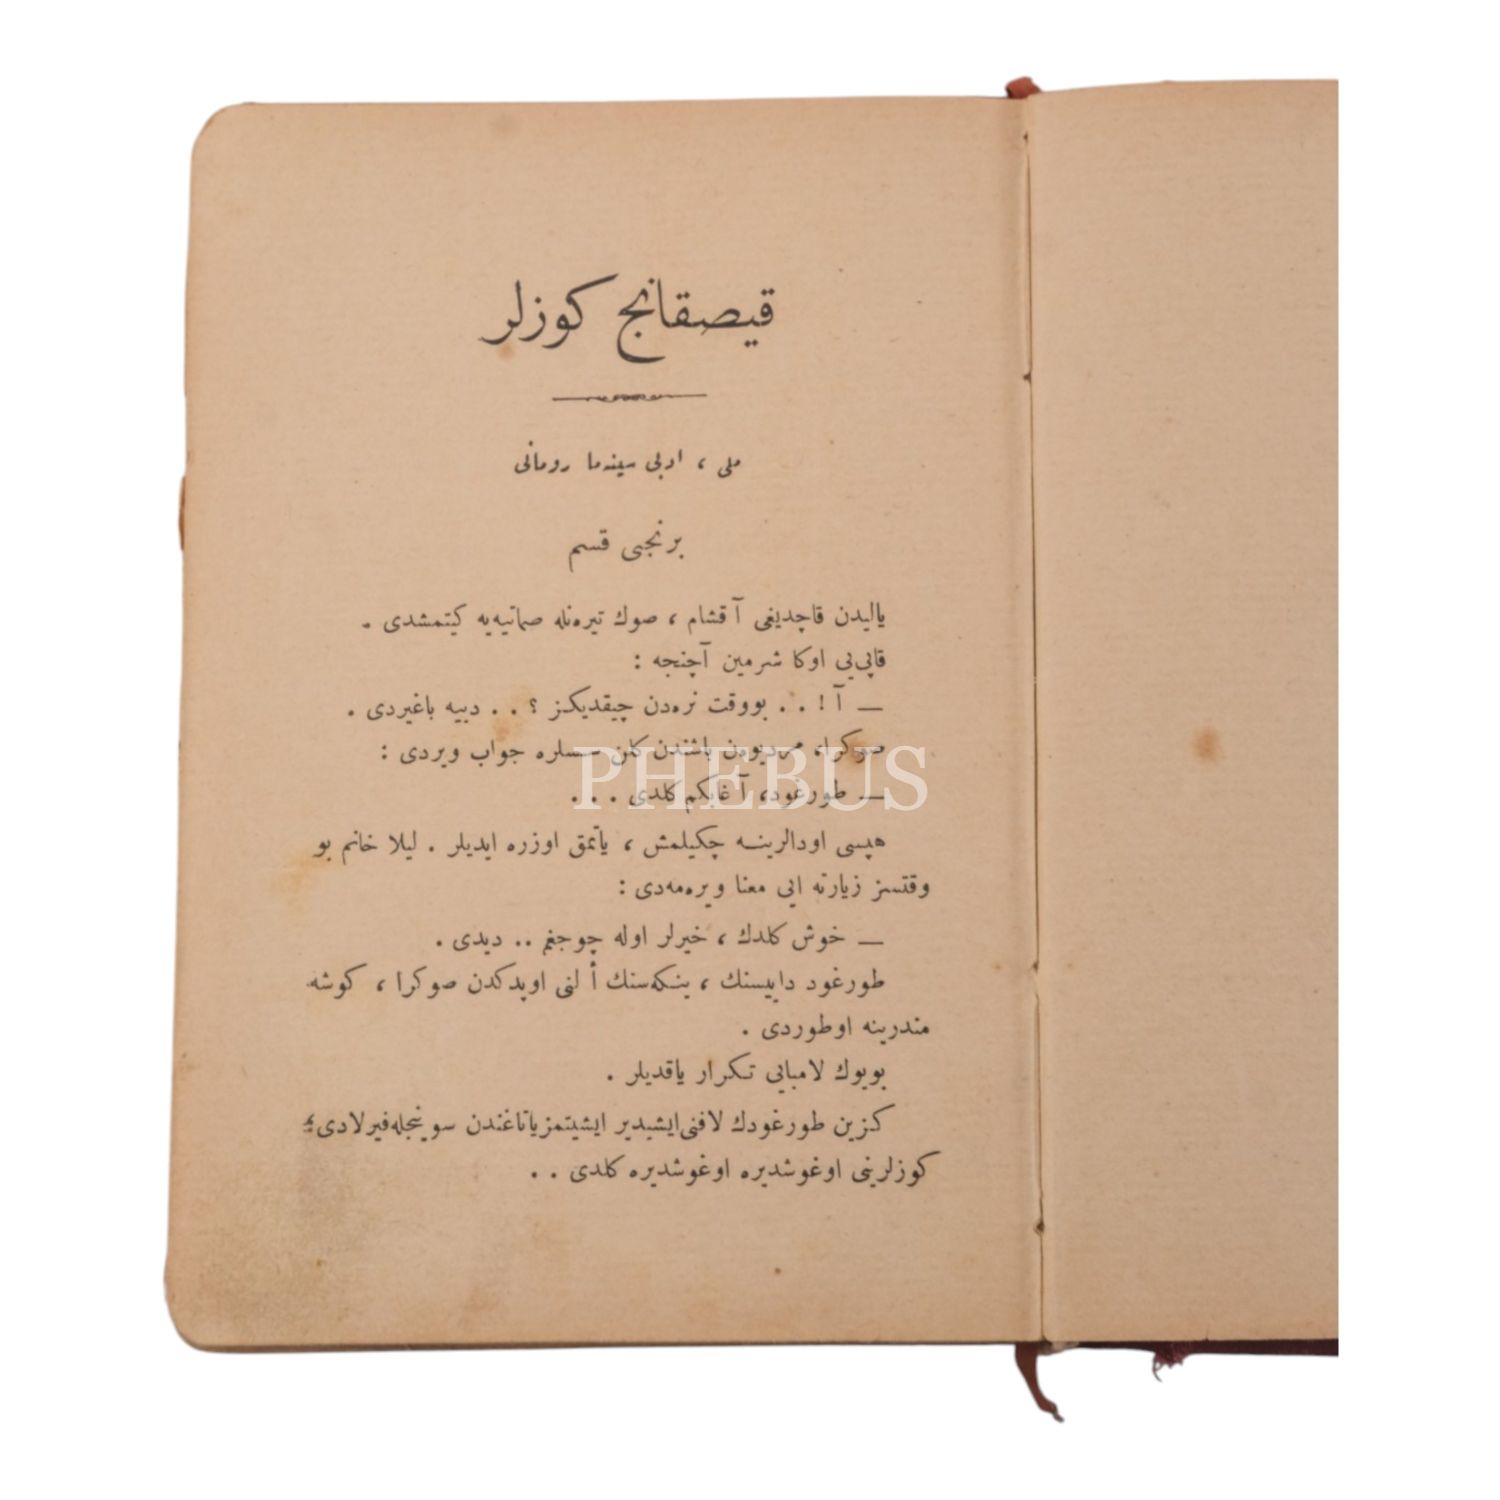 قیصقانج كوزلر
ملی ، ادبی سینه‌ما رومانی
برنجی قسم
یالیدن قاچدیغی آقشام ، صوك تیره‌نله صماتیه‌یه كیتمشدی .
قاپی‌یی اوكا شرمین آچنجه :
— آ ! . . بووقت نره‌دن چیقدیكز ؟ . . دییه باغیردی .
صوكرا، مردیوه‌ن باشندن كلن سسلره جواب ویردی :
— طورغود، آغابكم كلدی . . .
هپسی اودالرینـه چكیلمش ، یاتمق اوزره ایدیلر . لیلا خانم بو
وقتسز زیارته ایی معنا ویره‌مه‌دی :
— خوش كلدك ، خیرلر اوله چوجغم .. دیدی .
طورغود داییسنك ، ینكه‌سنك ألنی اوپدكدن صوكرا ، كوشه
مندرینه اوطوردی .
بویوك لامبایی تكرار یاقدیلر .
كزین طورغودك لافنی ایشیدیر ایشیتمز یاتاغندن سوینجله فیرلادی ؛
كوزلرینی اوغوشدیره اوغوشدیره كلدی . .
PHEBUS